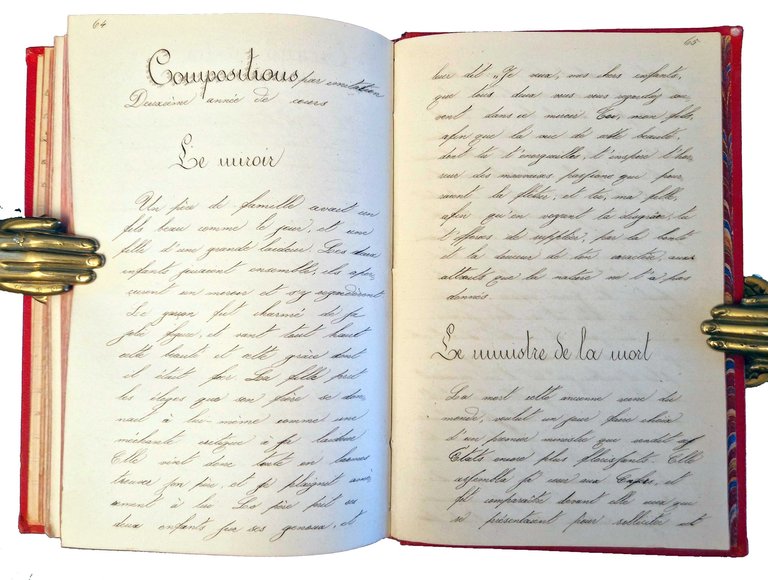 64
Compositions par imitation
Deuxième année de cours
Le miroir
Un père de famille avait un
fils beau comme le jour, et une
fille d'une grande laideur. Les deux
enfants jouaient ensemble, ils aper-
çurent un miroir et s'y regardèrent
Le garçon fut charmé de sa
jolie figure, et vant tout haut
cette beauté et cette grâce dont
il était fier La fille prit
les éloges que son frère se don-
nait à lui-même comme une
méchante critique à sa laideur
Elle vint donc toute en larmes
trouver son père, et se plaignit amère-
ment à lui Le père prit ses
deux enfants sur ses genoux, et
65
leur dit "Je veux, mes chers enfants,
que tous deux vous vous regardiez sou-
vent dans ce miroir Toi, mon fils,
afin que la vue de cette beauté,
dont tu t'enorgueilles, t'inspire l'hor-
reur des mauvaises passions que pour-
raient la flétrir, et toi, ma fille,
afin qu'en voyant ta disgrâce, tu
t'efforces de suppléer, par la bonté
et la douceur de ton caractère, aux
attraits que la nature ne t'a pas
donnés
Le ministre de la mort
La mort cette ancienne reine du
monde, voulut un jour faire choix
d'un premier ministre que rendit ses
États encore plus florissants. Elle
assembla sa cour aux
fit comparaître devant elle ceux qui
se présentaient pour solliciter et